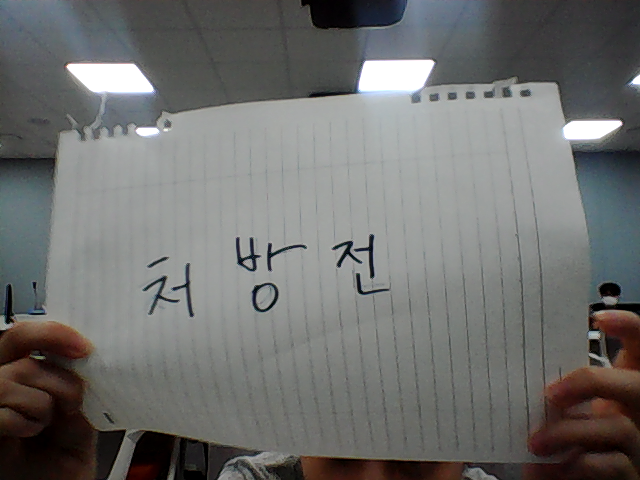 처방전